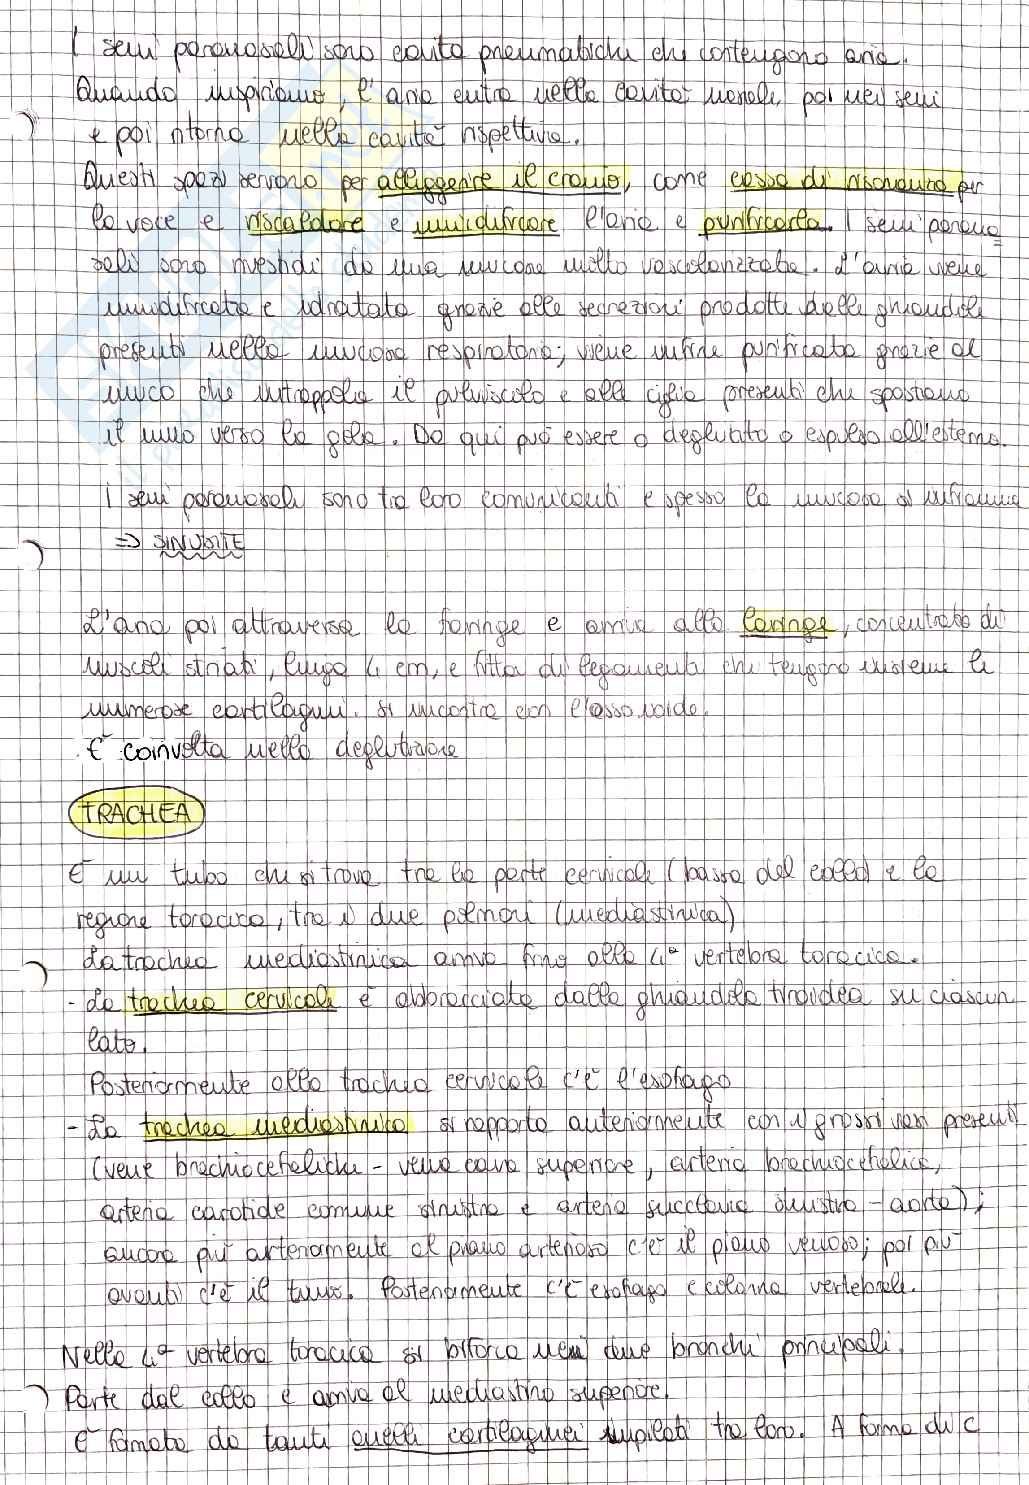 I seni paranasali sono cavità pneumatiche che contengono aria.
Quando inspiriamo, l'aria entra nelle cavità nasali, poi nei seni
e poi ritorna nelle cavità rispettive.
Questi spazi servono per alleggerire il cranio, come cassa di risonanza per
la voce e riscaldare e umidificare l'aria e purificarla. I seni parana=
sali sono rivestiti da una mucosa molto vascolarizzata. L'aria viene
umidificata e idratata grazie alle secrezioni prodotte dalle ghiandole
presenti nella mucosa respiratoria; viene infine purificata grazie al
muco che intrappola il pulviscolo e alle ciglia presenti che spostano
il muco verso la gola. Da qui può essere o deglutito o espulso all'esterno.
I seni paranasali sono tra loro comunicanti e spesso la mucosa si infiamma
=> SINUSITE
L'aria poi attraversa la faringe e arriva alla laringe, concentrato di
muscoli striati, lunga 4 cm, e fitta di legamenti che tengono insieme le
numerose cartilagini. Si incontra con l'osso ioide.
È coinvolta nella deglutizione
TRACHEA
È un tubo che si trova tra la parte cervicale (bassa del collo) e la
regione toracica, tra i due polmoni (mediastinica)
La trachea mediastinica arriva fino alla 4ª vertebra toracica.
- La trachea cervicale è abbracciata dalla ghiandola tiroidea su ciascun
lato.
Posteriormente alla trachea cervicale c'è l'esofago
- La trachea mediastinica si rapporta anteriormente con i grossi vasi presenti
(vene brachiocefaliche - vena cava superiore, arteria brachiocefalica,
arteria carotide comune sinistra e arteria succlavia sinistra - aorta);
ancora più anteriormente al piano arterioso c'è il piano venoso; poi più
avanti c'è il timo. Posteriormente c'è esofago e colonna vertebrale.
Nella 4ª vertebra toracica si biforca nei due bronchi principali.
Parte dal collo e arriva al mediastino superiore.
È formata da tanti anelli cartilaginei impilati tra loro. A forma di C